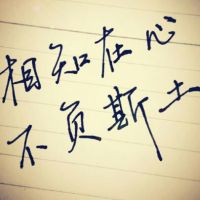 相知在心
不负斯土